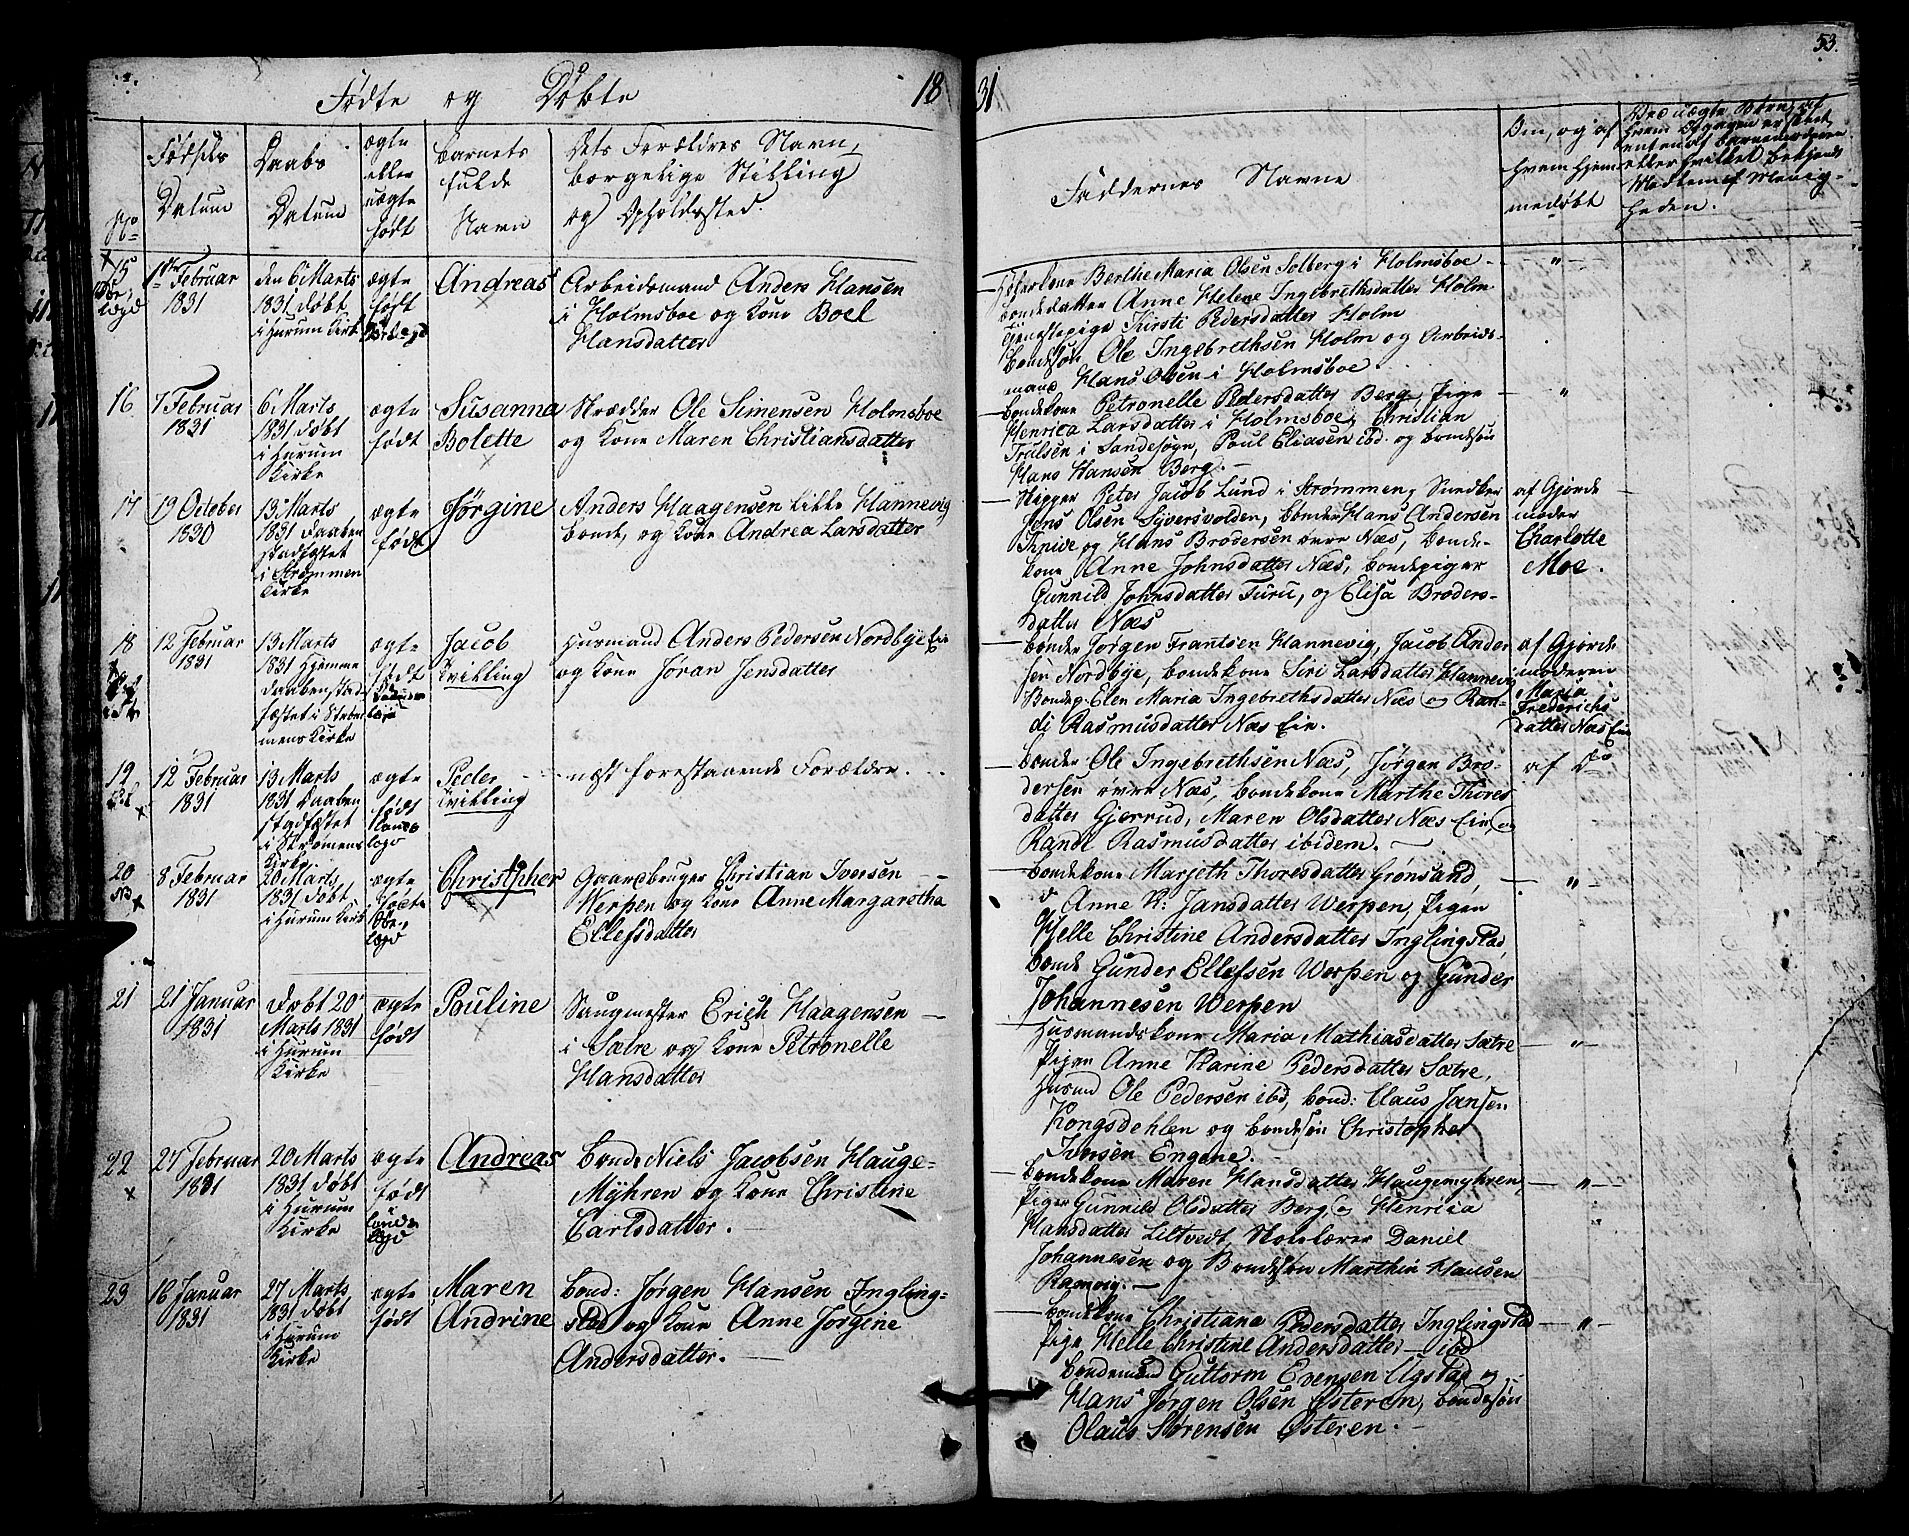 53.
Fødte og Døbte 1831
No
Fødsels Datum
Daabs Datum
ægte eller uægte født
Barnets fulde Navn
Dets Forældres Navn, borgerlige Stilling og Opholdssted.
Faddernes Navne
Om, og af hvem hjemmedøbt
15
1ste Februar 1831
den 6 Marts 1831 døbt i Hurum Kirke
ægte født
Andreas
Arbeidsmand Anders Hansen
i Holmsboe og Kone Boel
Hansdatter
Berthe Maria Olsen Solberg i Holmsboe
bondedatter Anne Helene Ingebrethsdatter Holm
Tjenestepige Kirsti Pedersdatter Holm
bondesøn Ole Ingebrethsen Holm og Arbeids-
mand Hans Olsen i Holmsboe.
16
7 Februar 1831
6 Marts 1831 døbt i Hurum Kirke
ægte født
Susanna Bolette
Skrædder Ole Simensen Holmsboe
og Kone Maren Christiansdatter
bondekone Petronelle Pedersdatter Berg, Pige
Henrica Larsdatter i Holmsboe, Christian
Trulsen i Sandesogn, Poul Eliasen ibd. og bondesøn
Hans Hansen Berg.
17
19 October 1830
13 Marts 1831 Daaben stadfæstet i Strømmen Kirke
ægte født
Jørgine
Anders Haagensen lille Hannevig
bonde, og Kone Andrea Larsdatter
Skipper Peter Jacob Lund i Strømmen,
Jens Olsen Syversvolden, bonde Hans Andersen
Knive og Hans Brodersen øvre Næs, bonde-
kone Anne Johnsdatter Næs, bondepiger
Gunnild Johnsdatter Turu, og Elisa Broders-
datter Næs
af Gjorde moder Charlotte Moe.
18
12 Februar 1831
13 Marts 1831 Hjemme daaben stadfæstet i Strømmens Kirke
ægte født
Jacob Tvilling
Husmand Anders Pedersen Nordbye Eie
og Kone Jøran Jensdatter
bønder Jørgen Frantsen Hannevig, Jacob Ander
sen Nordbye, bondekone Siri Larsdatter Hannevig
Bondep. Elen Maria Ingebrethsdatter Næs og Ran-
di Rasmusdatter Næs Eie.
af Gjordemoderen Maria Frederichsdatter Næs Eie
19
12 Februar 1831
13 Marts 1831 Daaben stadfæstet i Strømens Kirke.
ægte født
Peder Tvilling
næst forestaaende Forældre.
bonde Ole Ingebrethsen Næs, Jørgen Bro-
dersen øvre Næs, bondekone Marthe Thores
datter Gjerrud, Maren Olsdatter Næs Eie, og
Randi Rasmusdatter ibidem.
af Do
20
8 Februar 1831
20 Marts 1831 døbt i Hurum Kirke
ægte
Christopher
Gaardbruger Christian Iversen
Werpen og Kone Anne Margaretha
Ellefsdatter
bondekone Marjeth Thoresdatter Grønsand,
Anne K: Jansdatter Werpen, Pigen
Helle Christine Andersdatter Inglingstad,
bonde Gunder Ellefsen Werpen og Gunder
Johannesen Werpen
21
21 Januar 1831
Døbt 20 Marts 1831 i Hurum Kirke
ægte født
Pouline
Saugmester Erich Haagensen
i Sætre og Kone Petronelle
Hansdatter
Husmandskone Maria Mathiasdatter Sætre
Pigen Anne Karine Pedersdatter Sætre,
Husmd Ole Pedersen ibd, bond: Claus Jansen
Kongsdehlen og bondesøn Christopher
Iversen Engene.
22
27 Februar 1831
20 Marts 1831 døbt i Hurum Kirke
ægte født
Andreas
bonde Niels Jacobsen Hauge-
Myhren og Kone Christine
Carlsdatter.
bondekone Maren Hansdatter Haugemyhren,
Piger Gunnild Olsdatter Berg, og Henrica
Hansdatter Liltvedt, Skolelærer Daniel
Johannesen og Bondesøn Marthin Klausen
Ramvig.
23
16 Januar 1831
27 Marts 1831 døbt i Hurum Kirke
ægte født
Maren Andrine
bond: Jørgen Hansen Ingling-
stad og Kone Anne Jørgine
Andersdatter.
bondekone Christiana Pedersdatter Inglingstad
Pige Helle Christine Andersdatter ibd
bondemand Guttorm Evensen Ugstad og
Hans Jørgen Olsen Østeren, bondesøn
Olaus Sørensen Østeren.